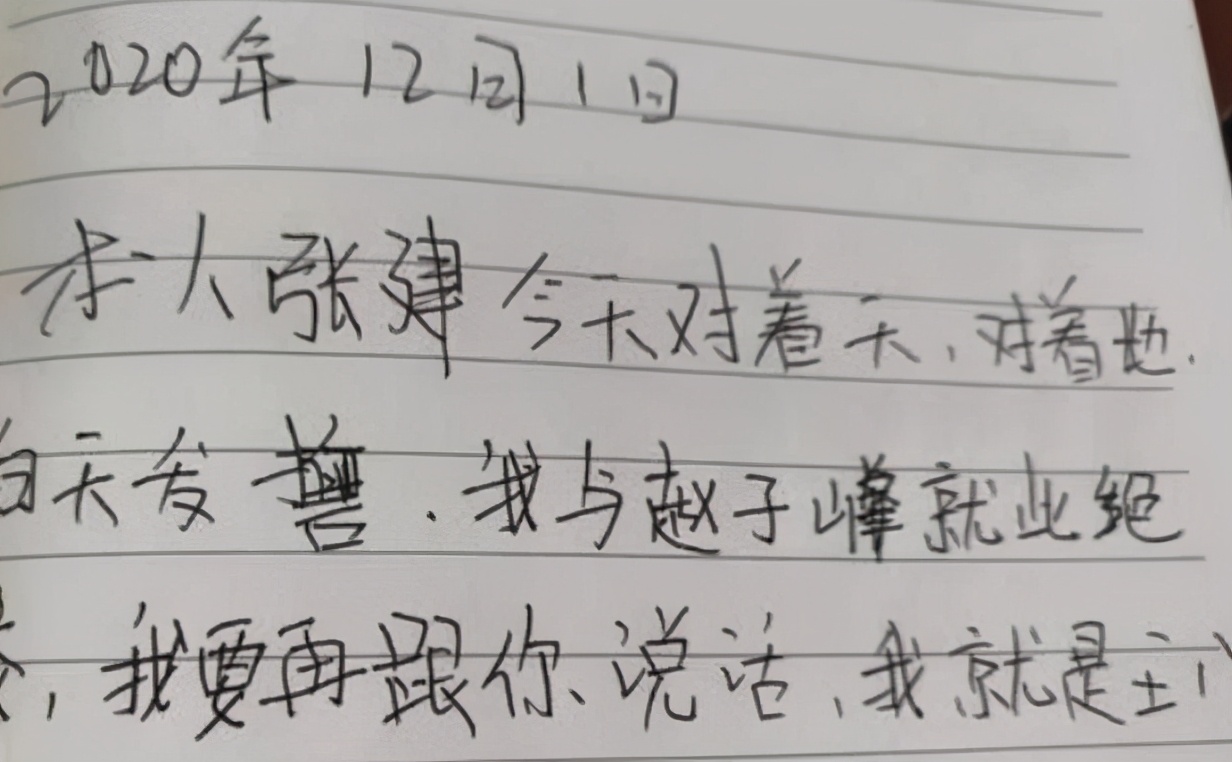 2020年12月1日
本人张建今天对着天,对着地.
向天发誓.我与赵子峰就此绝
,我要再跟你说话,我就是